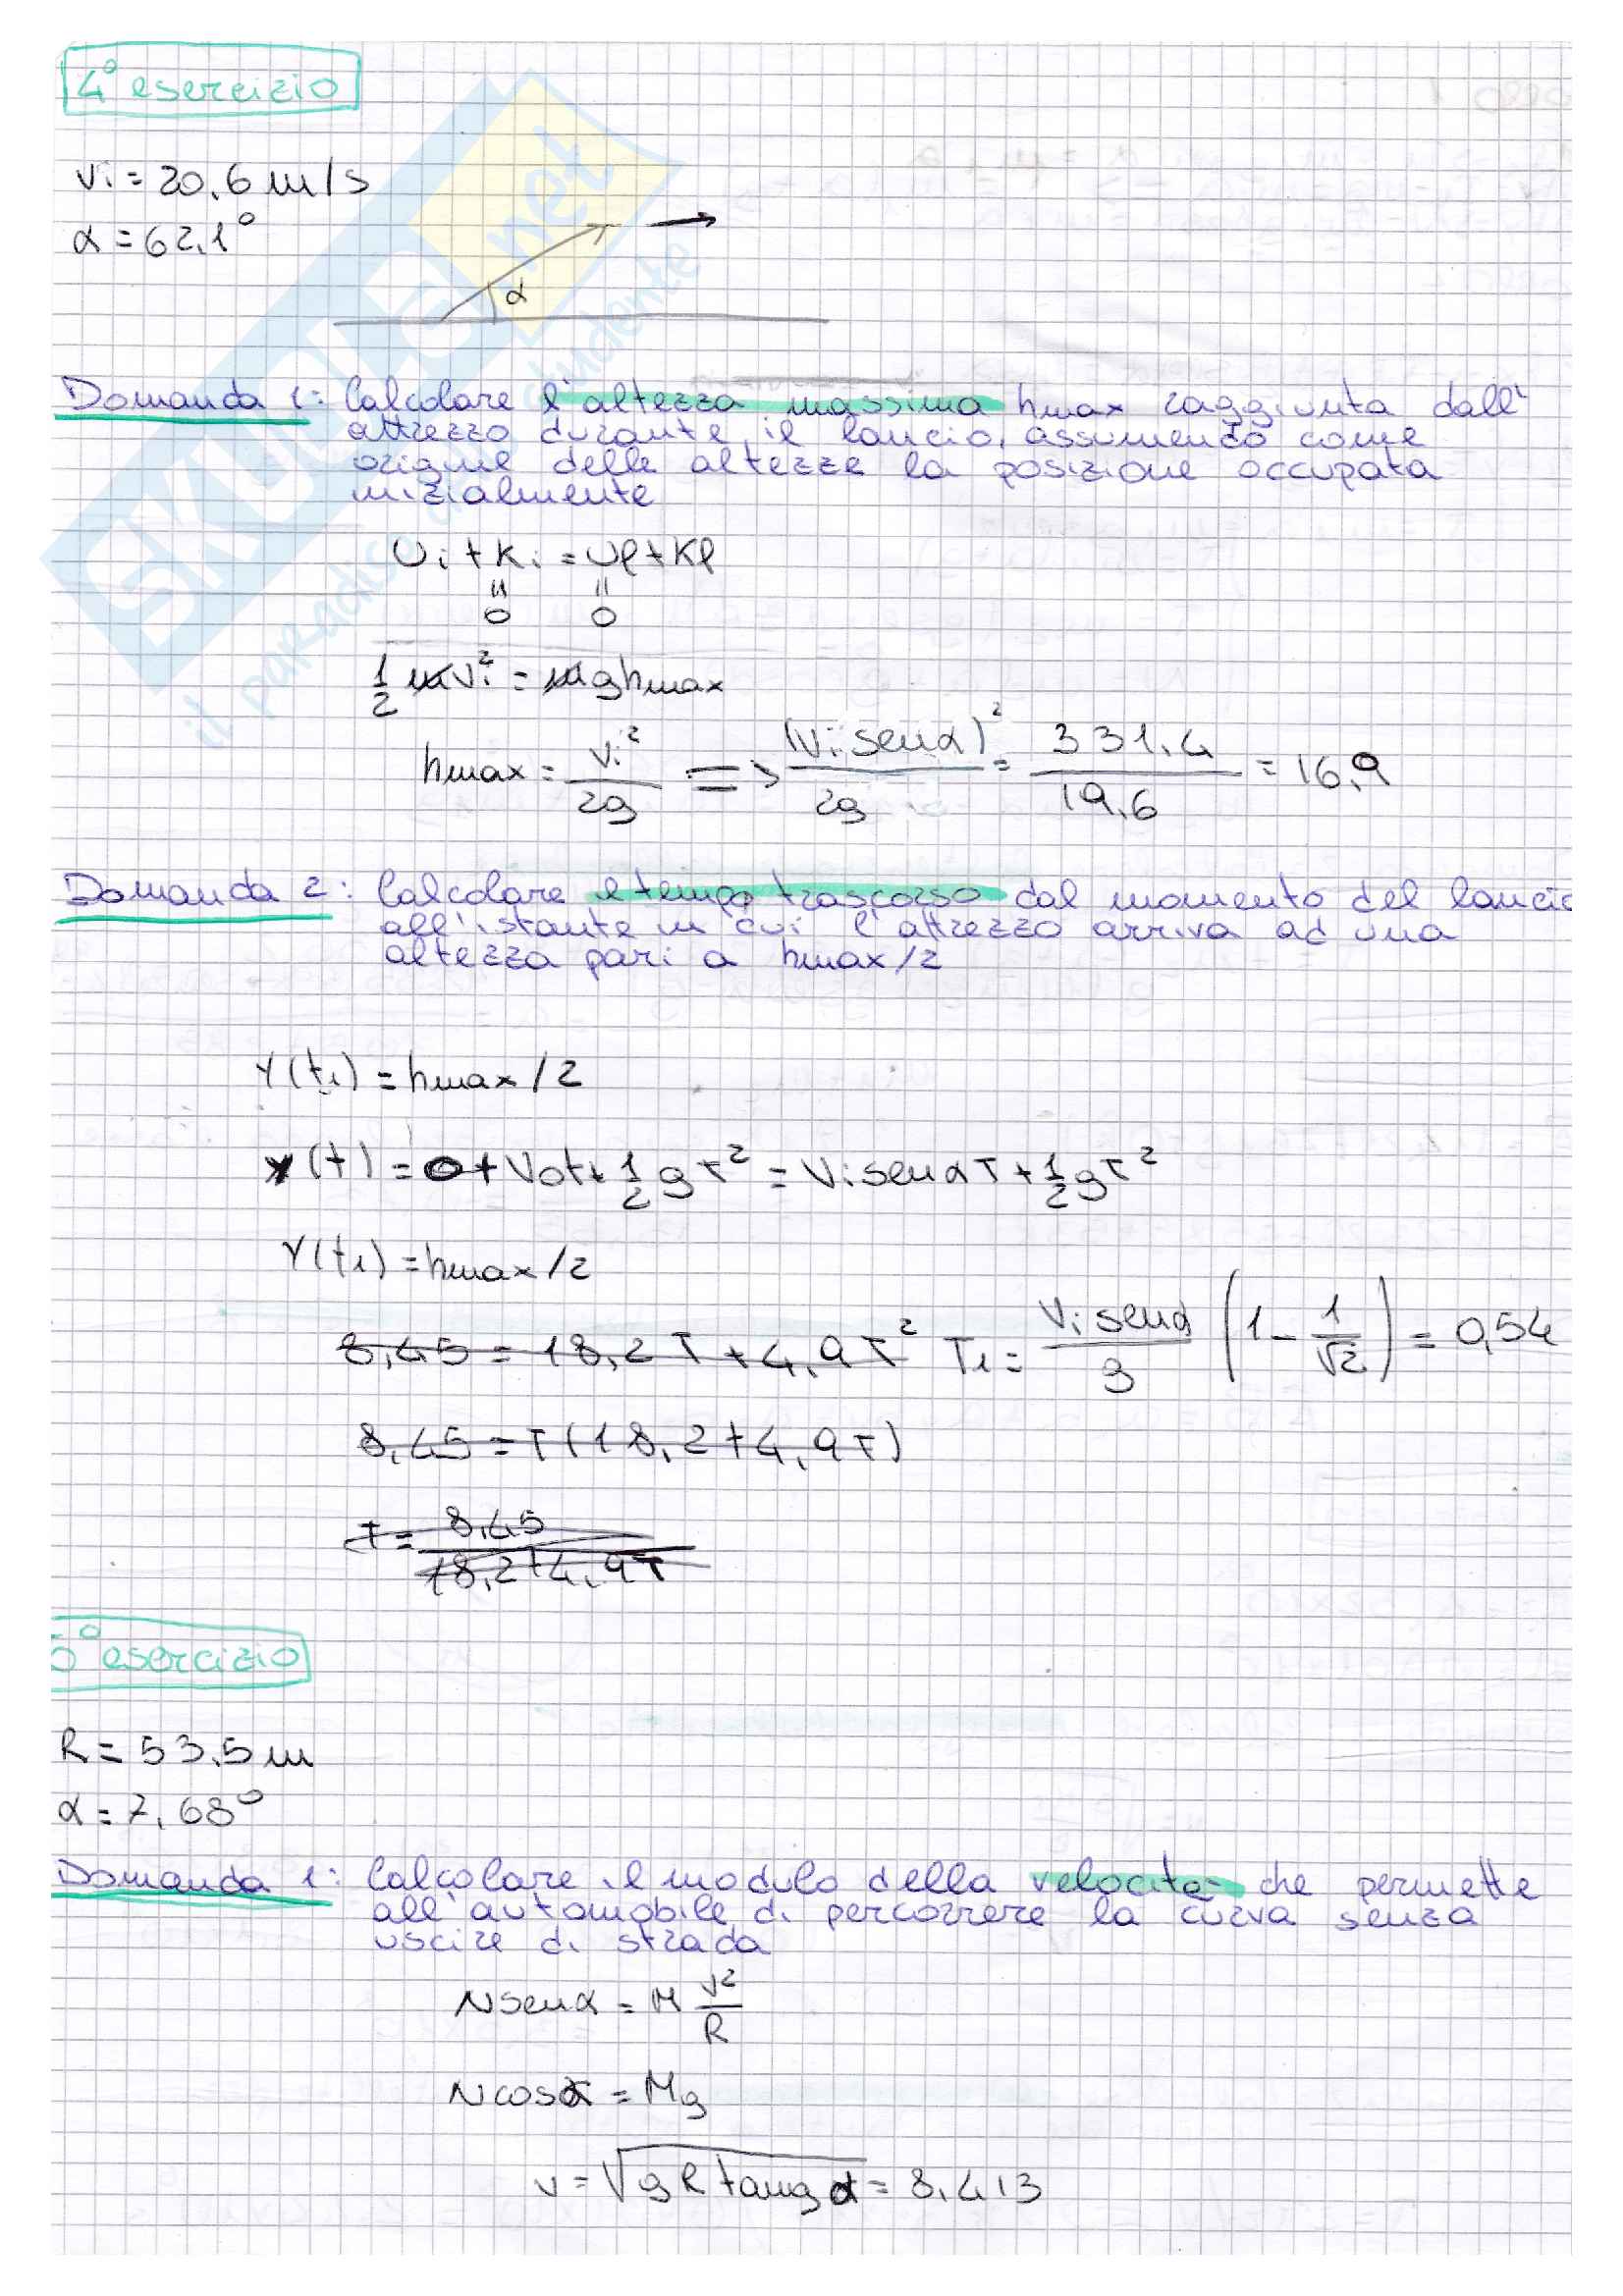 4° esercizio
Vi = 20.6 m/s
α = 62.1°
α
Domanda 1: Calcolare l'altezza massima hmax raggiunta dall'
attrezzo durante il lancio, assumendo come
origine delle altezze la posizione occupata
inizialmente
Ui + Ki = Uf + Kf
" "
0 0
1/2 mVi² = mghmax
hmax = Vi²/2g => (Vi senα)²/2g = 331,4/19,6 = 16,9
Domanda 2: Calcolare il tempo trascorso dal momento del lancio
all'istante in cui l'attrezzo arriva ad una
altezza pari a hmax/2
Y(t1) = hmax/2
Y(t) = 0 + V0t + 1/2 gT² = Vi senα T + 1/2 gT²
Y(t1) = hmax/2
8,45 = 18,2T + 4,9T² T1 = Vi senα/g (1 - 1/√2) = 0,54
8,45 = T(18,2 + 4,9T)
T = 8,45/18,2+4,9T
5° esercizio
R = 53.5 m
α = 7,68°
Domanda 1: Calcolare il modulo della velocità che permette
all'automobile di percorrere la curva senza
uscire di strada
Nsenα = M V²/R
Ncosα = Mg
v = √gR tangα = 8,413
SKUOLA.net
il paradiso dello studente